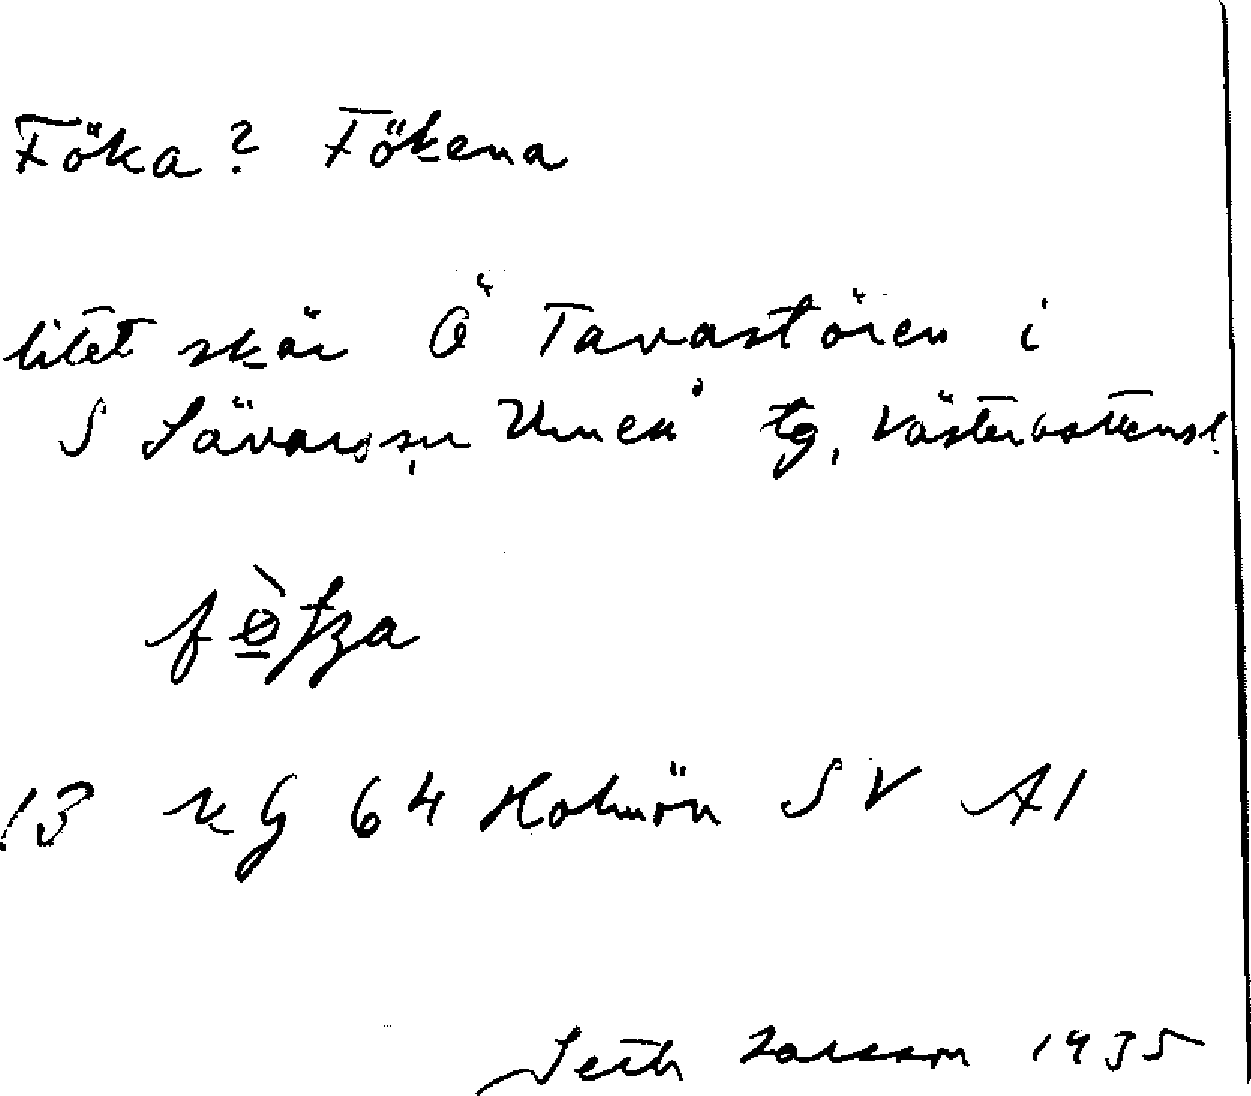 Föka? Fökena
litet skär Ö Tavastören i
S Sävar sn Umeå tg, Västerbottensl.
13 kG 64 Holmön SV A1
Seth Larsson 1935